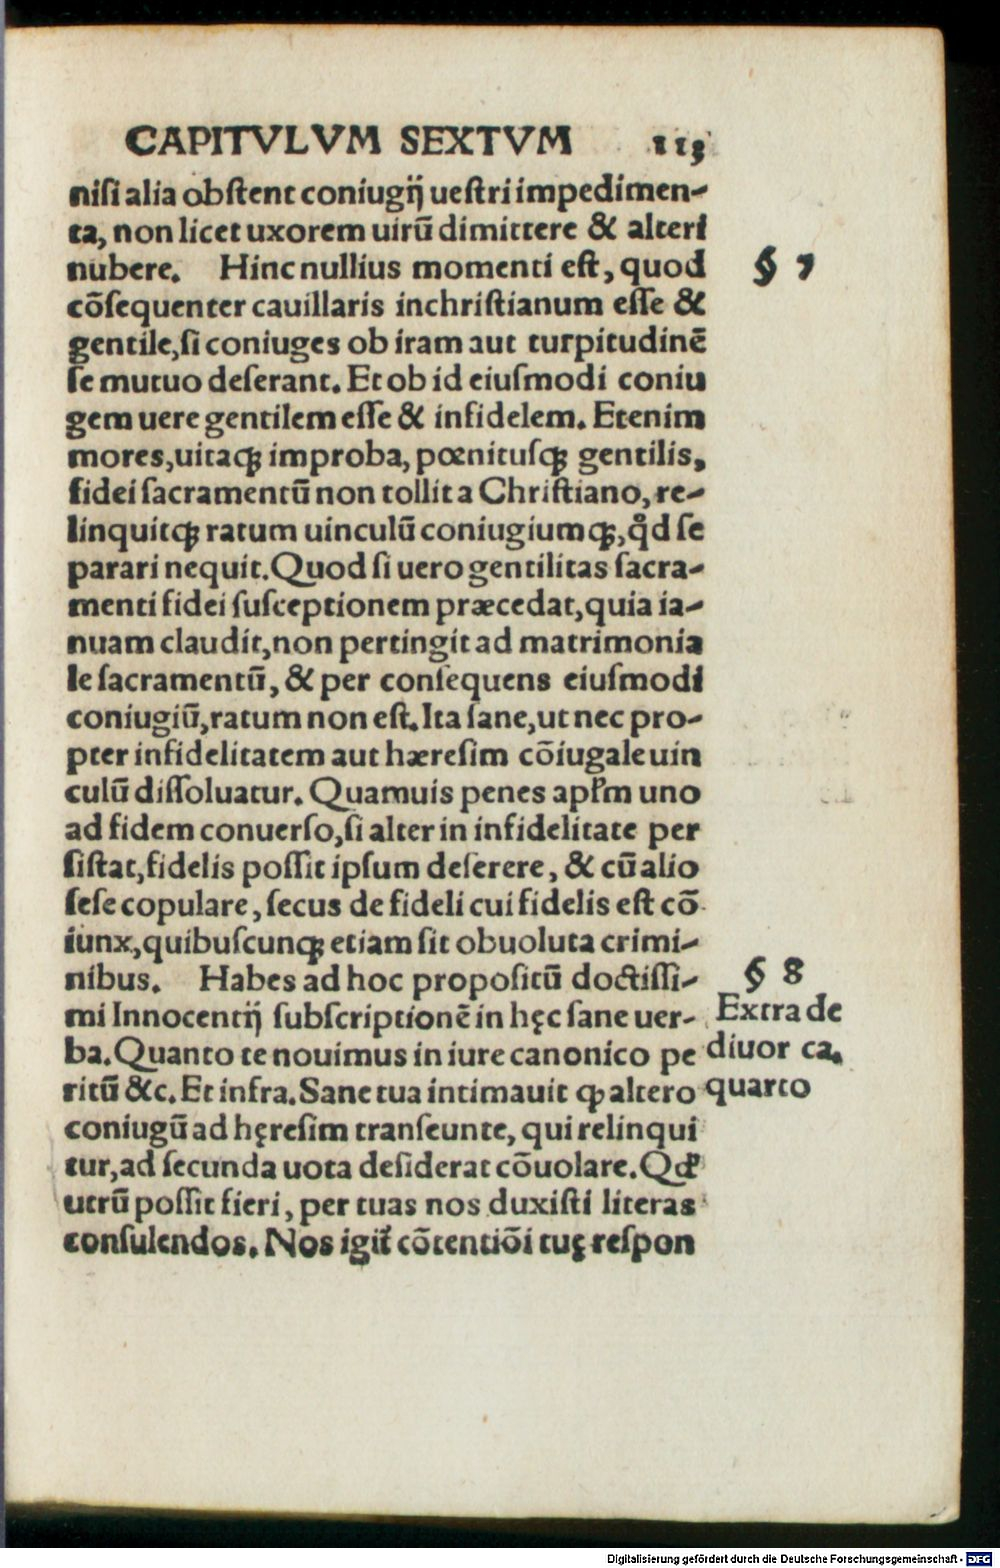 CAPITVLVM SEXTVM 113
nisi alia obstent coniugij uestri impedimen-
ta, non licet uxorem uirū dimittere & alteri
nubere. Hinc nullius momenti est, quod
§ 7
cōsequenter cauillaris inchristianum esse &
gentile, si coniuges ob iram aut turpitudinē
se mutuo deserant. Et ob id eiusmodi coniu
gem uere gentilem esse & infidelem. Etenim
mores, uitaqꝫ improba, pœnitusqꝫ gentilis,
fidei sacramentū non tollit a Christiano, re-
linquitqꝫ ratum uinculū coniugiumqꝫ, qd̊ se
parari nequit. Quod si uero gentilitas sacra-
menti fidei susceptionem præcedat, quia ia-
nuam claudit, non pertingit ad matrimonia
le sacramentū, & per consequens eiusmodi
coniugiū, ratum non est. Ita sane, ut nec pro-
pter infidelitatem aut hæresim cōiugale uin
culū dissoluatur. Quamuis penes apłm uno
ad fidem conuerso, si alter in infidelitate per
sistat, fidelis possit ipsum deserere, & cū alio
sese copulare, secus de fideli cui fidelis est cō-
iunx, quibuscunqꝫ etiam sit obuoluta crimi-
nibus. Habes ad hoc propositū doctissi-
§ 8
mi Innocentij subscriptionē in hęc sane uer-
Extra de
ba. Quanto te nouimus in iure canonico pe
diuor ca.
ritū &c. Et infra. Sane tua intimauit ꝙ altero
quarto
coniugū ad hęresim transeunte, qui relinqui
tur, ad secunda uota desiderat cōuolare. Qđ
utrū possit fieri, per tuas nos duxisti literas
consulendos. Nos igit̃ cōtentiōi tuę respon
Digitalisierung gefördert durch die Deutsche Forschungsgemeinschaft - DFG